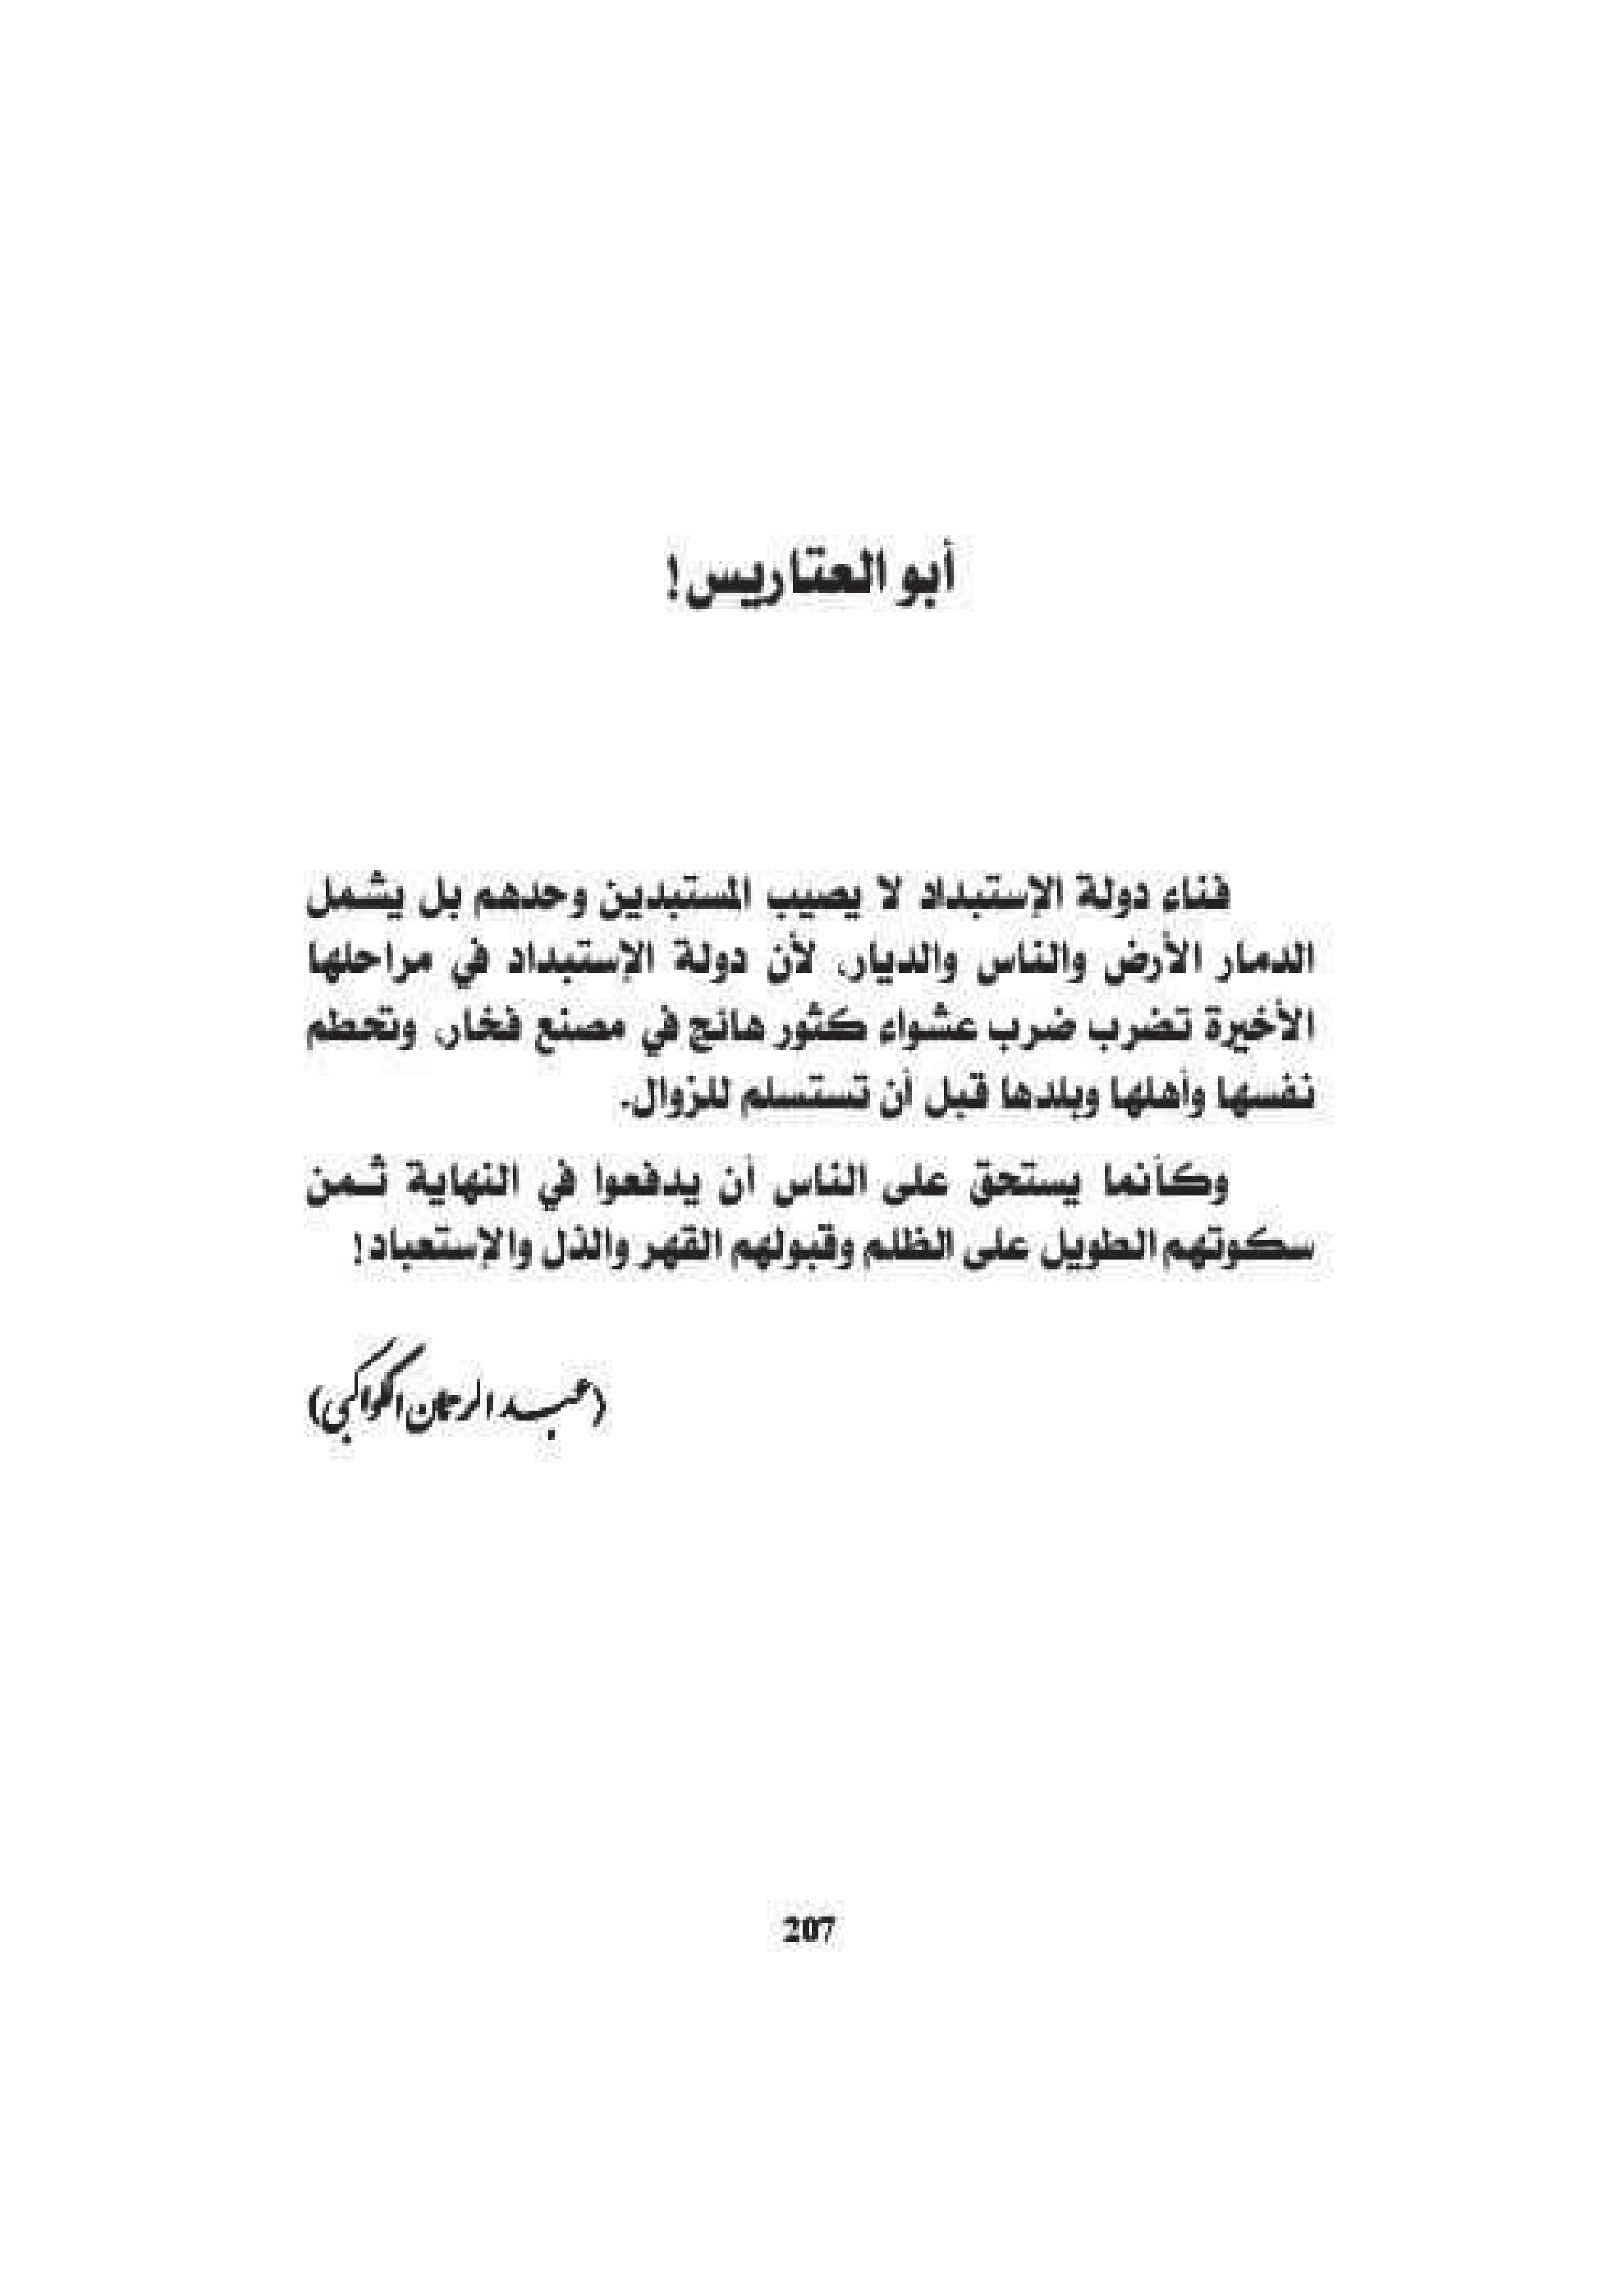 أبو العتاريس!
فناء دولة الإستبداد لا يصيب المستبدين وحدهم بل يشمل
الدمار الأرض والناس والديار، لأن دولة الإستبداد في مراحلها
الأخيرة تضرب ضرب عشواء كثور هائج في مصنع فخار، وتحطم
نفسها وأهلها وبلدها قبل أن تستسلم للزوال.
وكأنما يستحق على الناس أن يدفعوا في النهاية ثـمن
سكوتهم الطويل على الظلم وقبولهم القهر والذل والإستعباد!
(عبـد الرحمان الكواكبي)
207